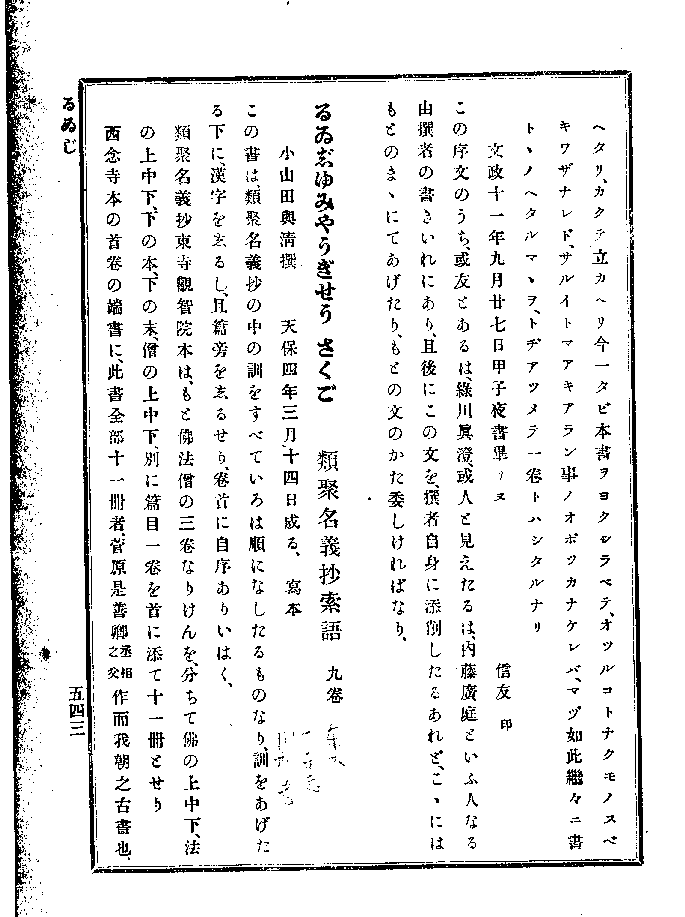 ヘタリ、カクテ立カヘリ今一タビ本書ヲヨクシラベテ、オツルコトナクモノスベ
キワザナレド、サルイトマアキアラン事ノオボツカナケレバ、マヅ如此繼々ニ書
トヽノヘタルマヽヲ、トヂアツメテ一卷トハシタルナリ
文政十一年九月廿七日甲子夜書畢ヌ 信友 印
この序文のうち、或友とあるは、綠川眞澄、或人と見えたるは、內藤廣庭といふ人なる
由撰者の書きいれにあり、且後にこの文を、撰者自身に添削したるあれど、こゝには
もとのまゝにてあげたり、もとの文のかた委しければなり、
るゐじゆみやうぎせう さくご 類聚名義抄索語 九卷
小山田與淸撰 天保四年三月十四日成る、 寫本
この書は、類聚名義抄の中の訓をすべていろは順になしたるものなり、訓をあげた
る下に、漢字をゑるし、且篇旁をゑるせり、卷首に自序ありいはく、
類聚名義抄東寺觀智院本は、もと佛法僧の三卷なりけんを、分ちて佛の上中下、法
の上中下、下の本、下の末、僧の上中下、別に篇目一卷を首に添て十一冊とせり
西念寺本の首卷の端書に、此書全部十一冊者、菅原是善卿丞相之父作而我朝之古書也、
るゐじ
五四三